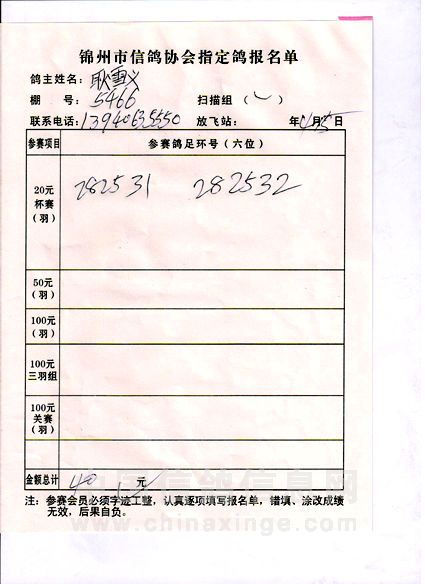 锦州市信鸽协会指定鸽报名单
鸽主姓名：耿雪义
棚 号：5466 扫描组（✓）
联系电话：13940635550 放飞站： 年4月5日
参赛项目 参赛鸽足环号（六位）
20元杯赛（羽） 282531 282532
50元（羽）
100元（羽）
100元三羽组
100元关赛（羽）
金额总计 40 元
注：参赛会员必须字迹工整，认真逐项填写报名单，错填、涂改成绩
无效，后果自负。
中国信鸽信息网
www.chinaxinge.com